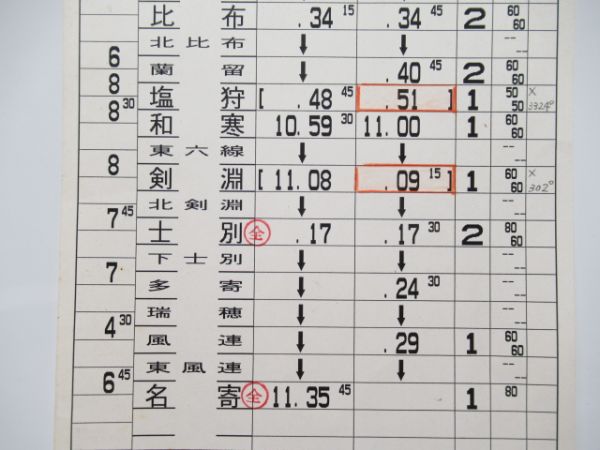 比布 .34 15 .34 45 2 60 60
北比布 ↓ ↓ -- --
6
蘭留 ↓ .40 45 2 60 60
8
塩狩 [ .48 45 .51 ] 1 50 50 × 332ᴅ
8 30
和寒 10.59 30 11.00 1 60 60
東六線 ↓ ↓ -- --
8
剣淵 [ 11.08 .09 15 ] 1 60 60 × 302ᴅ
北剣淵 ↓ ↓ -- --
7 45
士別 全 .17 .17 30 2 80 60
下士別 ↓ ↓ -- --
7
多寄 ↓ .24 30 -- --
瑞穂 ↓ ↓ -- --
4 30
風連 ↓ .29 1 60 60
東風連 ↓ ↓ -- --
6 45
名寄 全 11.35 45 1 80